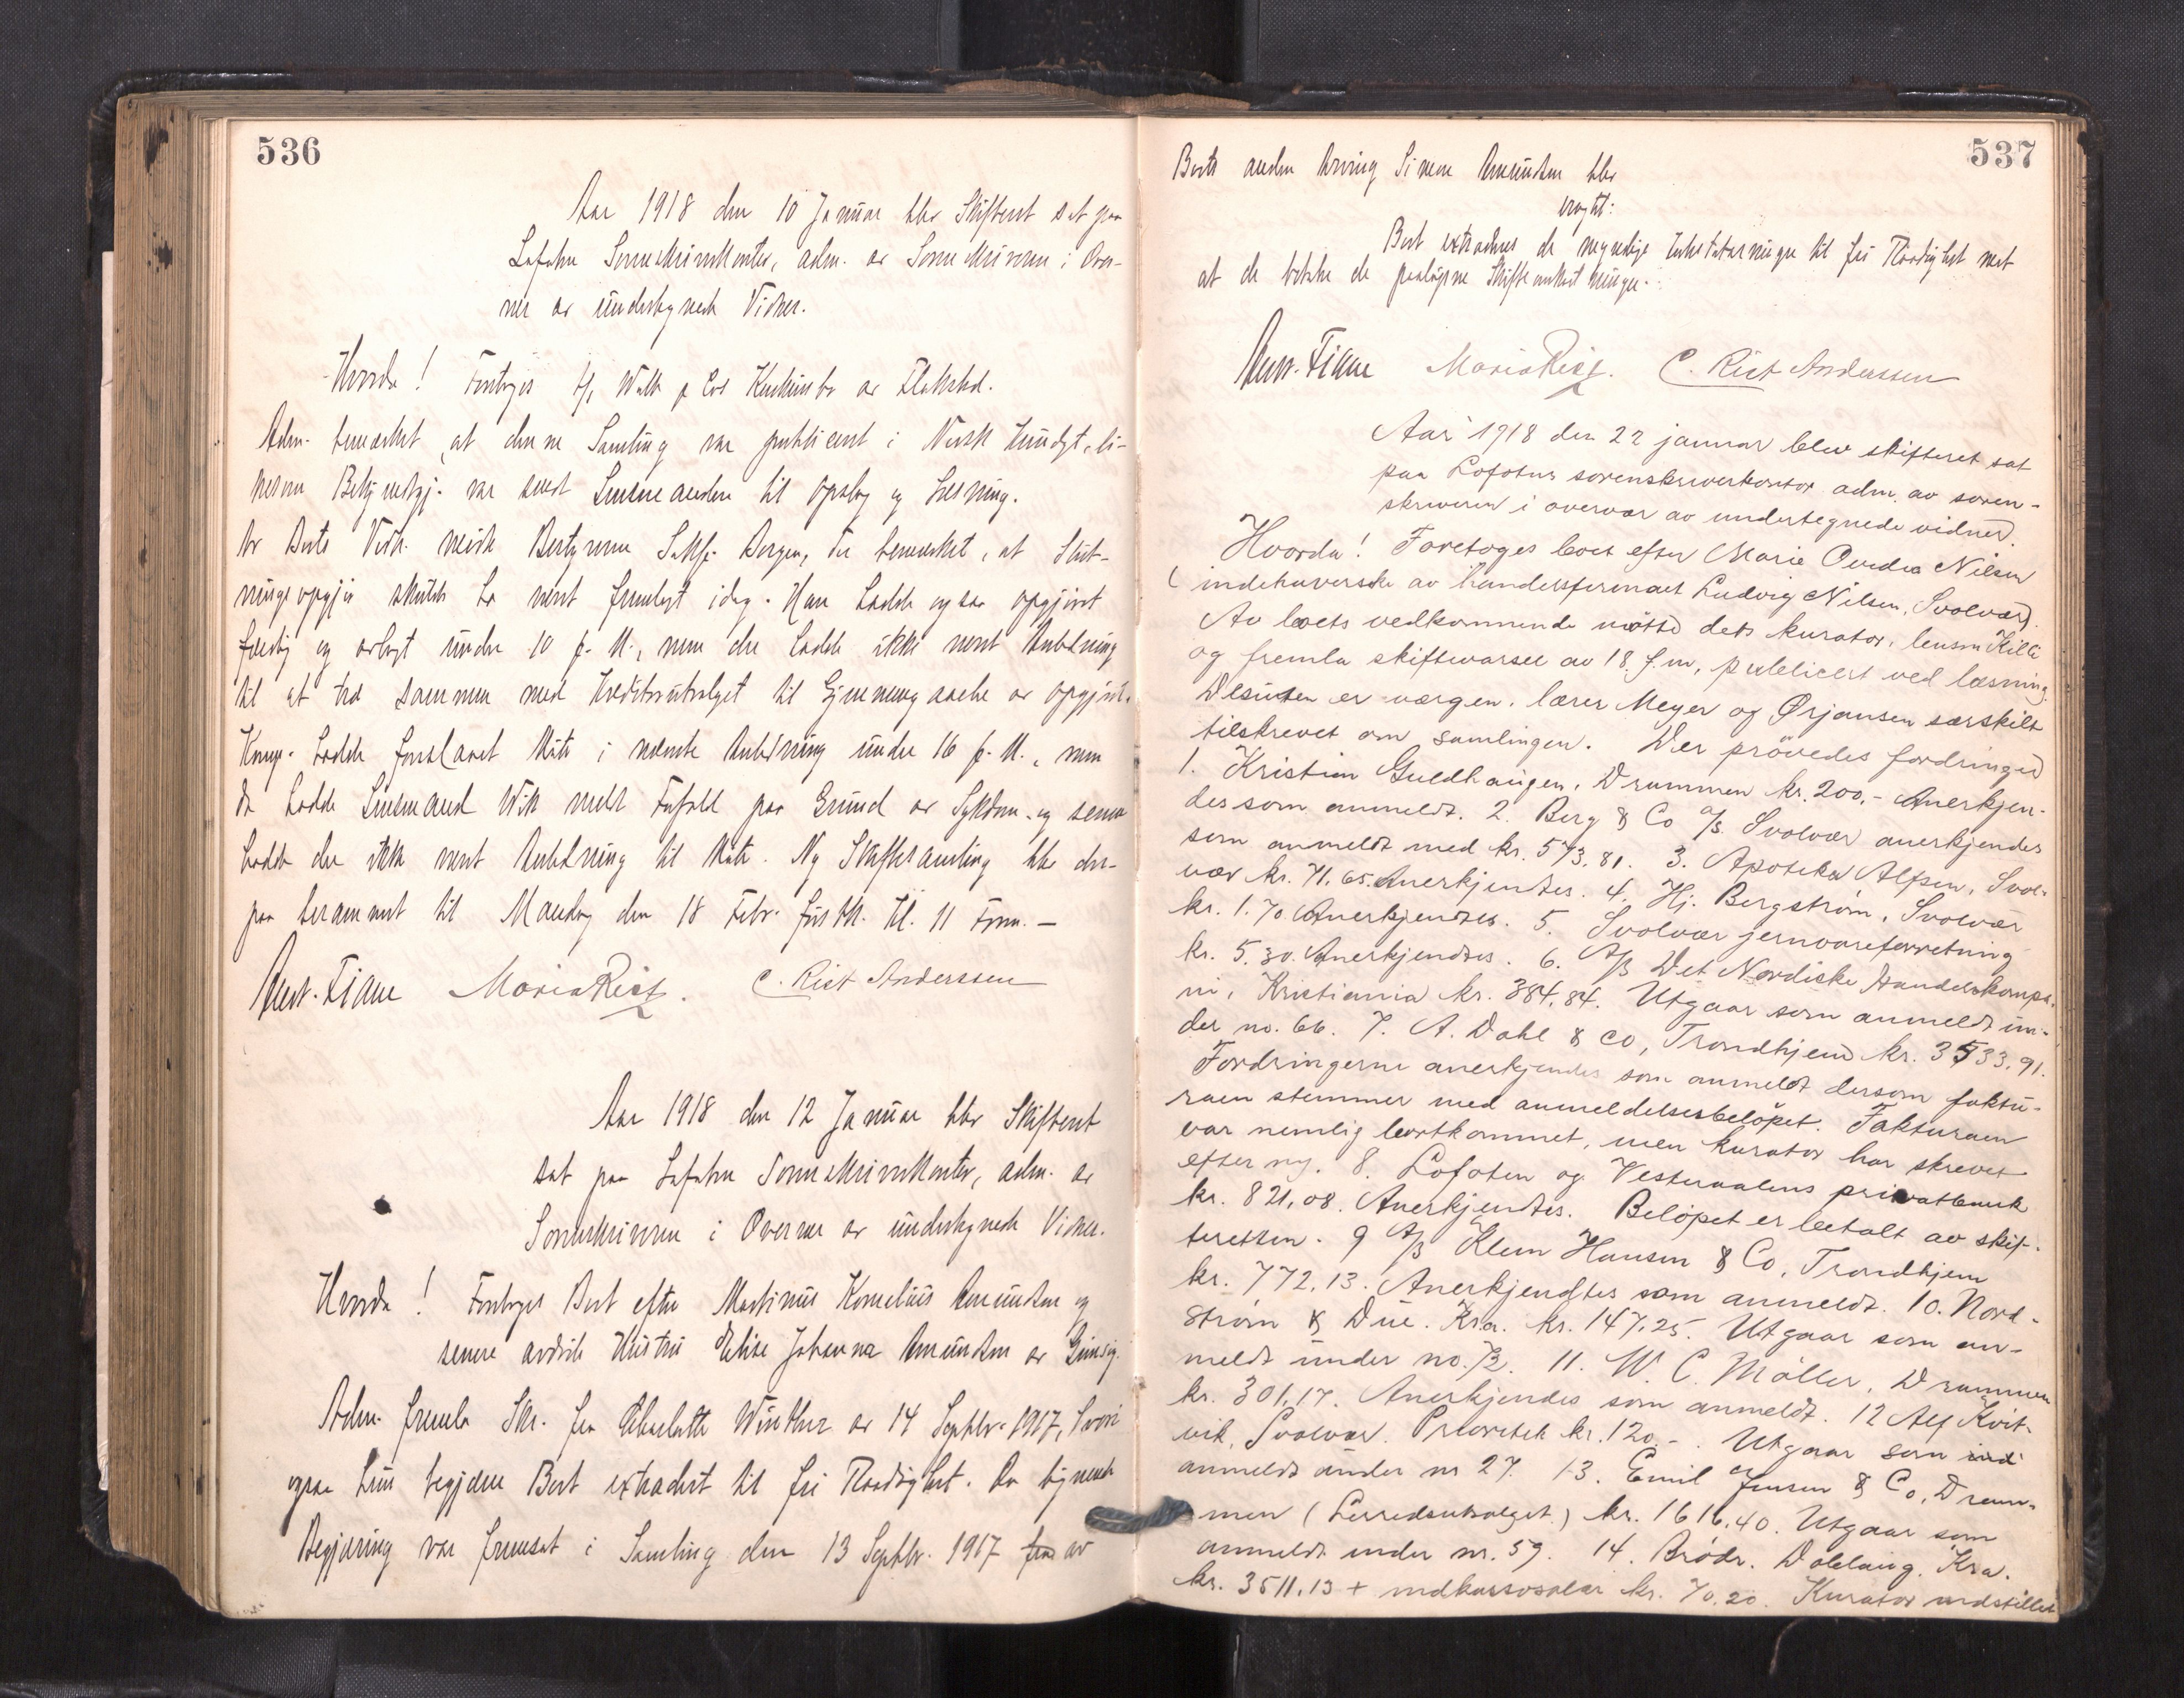 536
Aar 1918 den 10 Januar blev Skifteret sat paa
Lofoten Sorenskriverkontor, adm. av Sorenskriveren i Over-
vær av undertegnede Vidner.
Hvorda! Foretoges
Adm. bemærket, at denne Samling var publicert i Norsk Kundgj.ti-
var sendt Lensmanden til Opslag og Læsning.
For Boets Vedk. møtte Bestyreren Sakf. Bergen, der bemærket, at Slut-
ningsopgjør skulde ha været fremlagt idag. Han hadde ogsaa opgjøret
færdig og avlagt under 10 f. M., men der hadde ikke været Anledning
til at træ sammen med Kreditorutvalget til Gjennemgaaelse av opgjøret.
Komp. hadde foreslaaet Møte i nævnte Anledning under 16 f. M., men
da hadde Lensmand Wik meldt Forfald paa Grund av Sykdom og senere
hadde der ikke været Anledning til Møte. Ny Skiftesamling blev der-
paa berammet til Mandag den 18 Febr. førstk. Kl. 11 Form. —
Andr. Fiane Maria Rist. C. Rist Anderssen
Aar 1918 den 12 Januar blev Skifteret
sat paa Lofoten Sorenskriverkontor, adm. av
Sorenskriveren i Overvær av undertegnede Vidner.
Hvorda! Foretoges Boet efter Martinus Kornelius Amundsen og
senere avdøde Hustru Elise Johanna Amundsen av Gimsøy.
Adm. fremla Skr. fra Winther av 14 Septbr. 1917, hvori
ogsaa hun begjærer Boet extradert til fri Raadighet. En lignende
Begjæring var fremsat i Samling den 13 Septbr. 1917 fra av
537
Boets anden Arving Simon Amundsen blev
Boet extraderes de myndige til fri Raadighet mot
at de betale de paaløpne Skifteomkostninger.
Andr. Fiane Maria Rist. C. Rist Anderssen
Aar 1918 den 22 januar blev skifteret sat
paa Lofotens sorenskriverkontor adm. av soren-
skriveren i overvær av undertegnede vidner.
Hvorda! Foretoges boet efter Marie Ovedia Nilsen
(indehaverske av handelsfirmaet Ludvig Nilsen, Svolvær).
Av boets vedkommende møtte dets kurator, lensm Killi
og fremla skiftevarsel av 18. f.m, publicert ved læsning.
Desuten er værgen, lærer Meyer og Ørjansen særskilt
tilskrevet om samlingen. Der prövedes fordringer
1. Kristian Guldhaugen, Drammen kr. 200,- Anerkjen-
des som anmeldt. 2. Berg & Co A/S. Svolvær anerkjendes
som anmeldt med kr. 573,81. 3. Apoteker Alfsen, Svol-
vær kr. 71,65. Anerkjendtes. 4. Hj. Bergström, Svolvær
kr. 1.70 Anerkjendtes. 5. Svolvær jernvareforretning
kr. 5.30. Anerkjendtes. 6. A/S Det Nordiske Handelskompa-
ni, Kristiania kr. 384,84. Utgaar som anmeldt un-
der no. 66. 7. A. Dahl & Co, Trondhjem kr. 3533,91.
Fordringerne anerkjendes som anmeldt dersom faktu-
raen stemmer med anmeldelsesbelöpet. Fakturaen
var nemlig bortkommet, men kurator har skrevet
efter ny. 8. Lofoten og Vesteraalens privatbank
kr. 821,08. Anerkjendtes. Belöpet er betalt av skif-
teretten. 9 A/S Klem Hansen & Co, Trondhjem
kr. 772,13. Anerkjendtes som anmeldt. 10. Nord-
ström & Due. Kra. kr. 147,25. Utgaar som an-
meldt under no. 72. 11. W. C. Möller, Drammen
kr. 301,17. Anerkjendes som anmeldt. 12 Alf Kvit-
vik, Svolvær. Prioritet kr. 120.-. Utgaar som ind
anmeldt under nr 27. 13. Emil Jensen & Co, Dram-
men (Lerredsutsalget) kr. 1616,40. Utgaar som
anmeldt under nr. 59. 14. Brödr. Dobloug. Kra.
kr. 3511.13 + indkassosalær kr. 70.20. Kurator indstillet